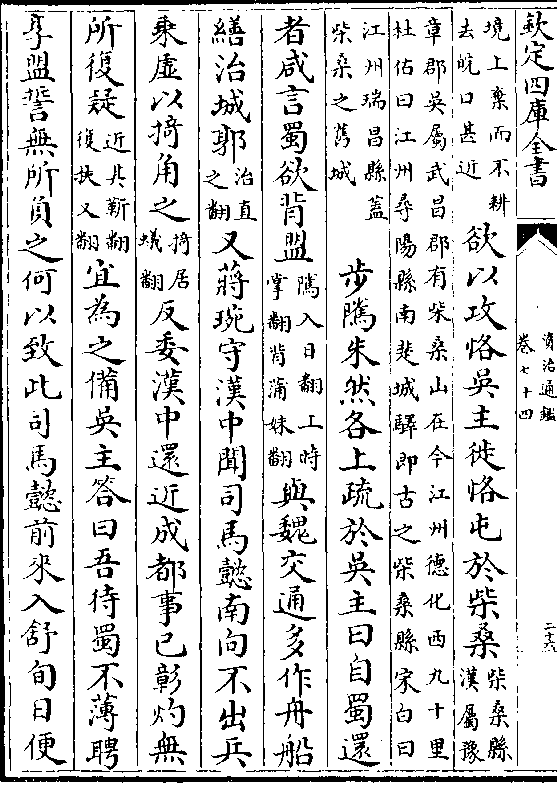 欽定四庫全書
資治通鑑
卷七十四
二十六
境上棄而不耕
去皖口甚近
欲以攻恪吳主徙恪屯於柴桑
柴桑縣
漢屬豫
章郡吳屬武昌郡有柴桑山在今江州德化西九十里
杜佑曰江州尋陽縣南楚城驛即古之柴桑縣宋白曰
江州瑞昌縣蓋
柴桑之舊城
步隲朱然各上疏於吳主曰自蜀還
者咸言蜀欲背盟
隲入日翻上時
掌翻背蒲妹翻
與魏交通多作舟船
繕治城郭
治直
之翻
又蔣琬守漢中聞司馬懿南向不出兵
乘虛以掎角之
掎居
蟻翻
反委漢中還近成都事已彰灼無
所復疑
近其靳翻
復扶又翻
宜為之備吳主答曰吾待蜀不薄聘
享盟誓無所負之何以致此司馬懿前來入舒旬日便